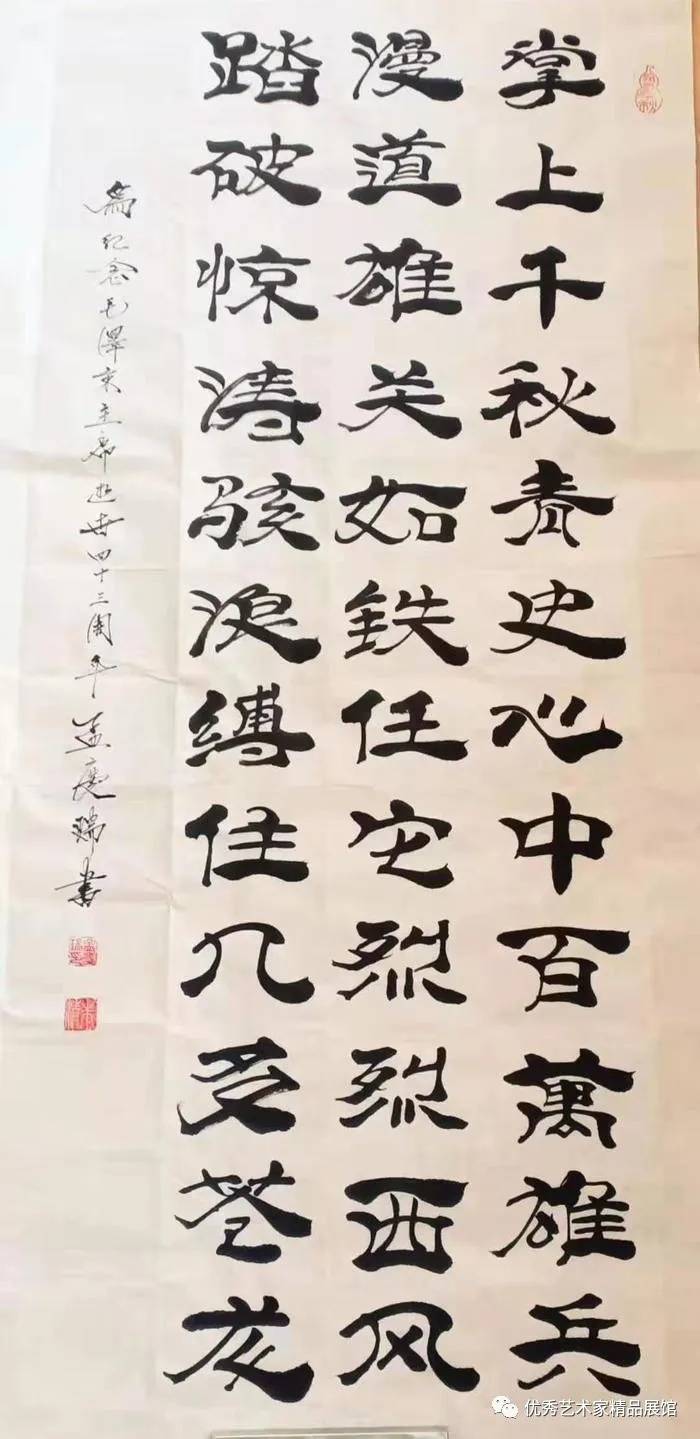 掌上千秋青史心中百萬雄兵
漫道雄关如鉄任它烈烈西风
踏破惊涛骇浪缚住几多苍龙
為纪念毛澤东主席逝世四十三周年孟庆瑞書
优秀艺术家精品展馆